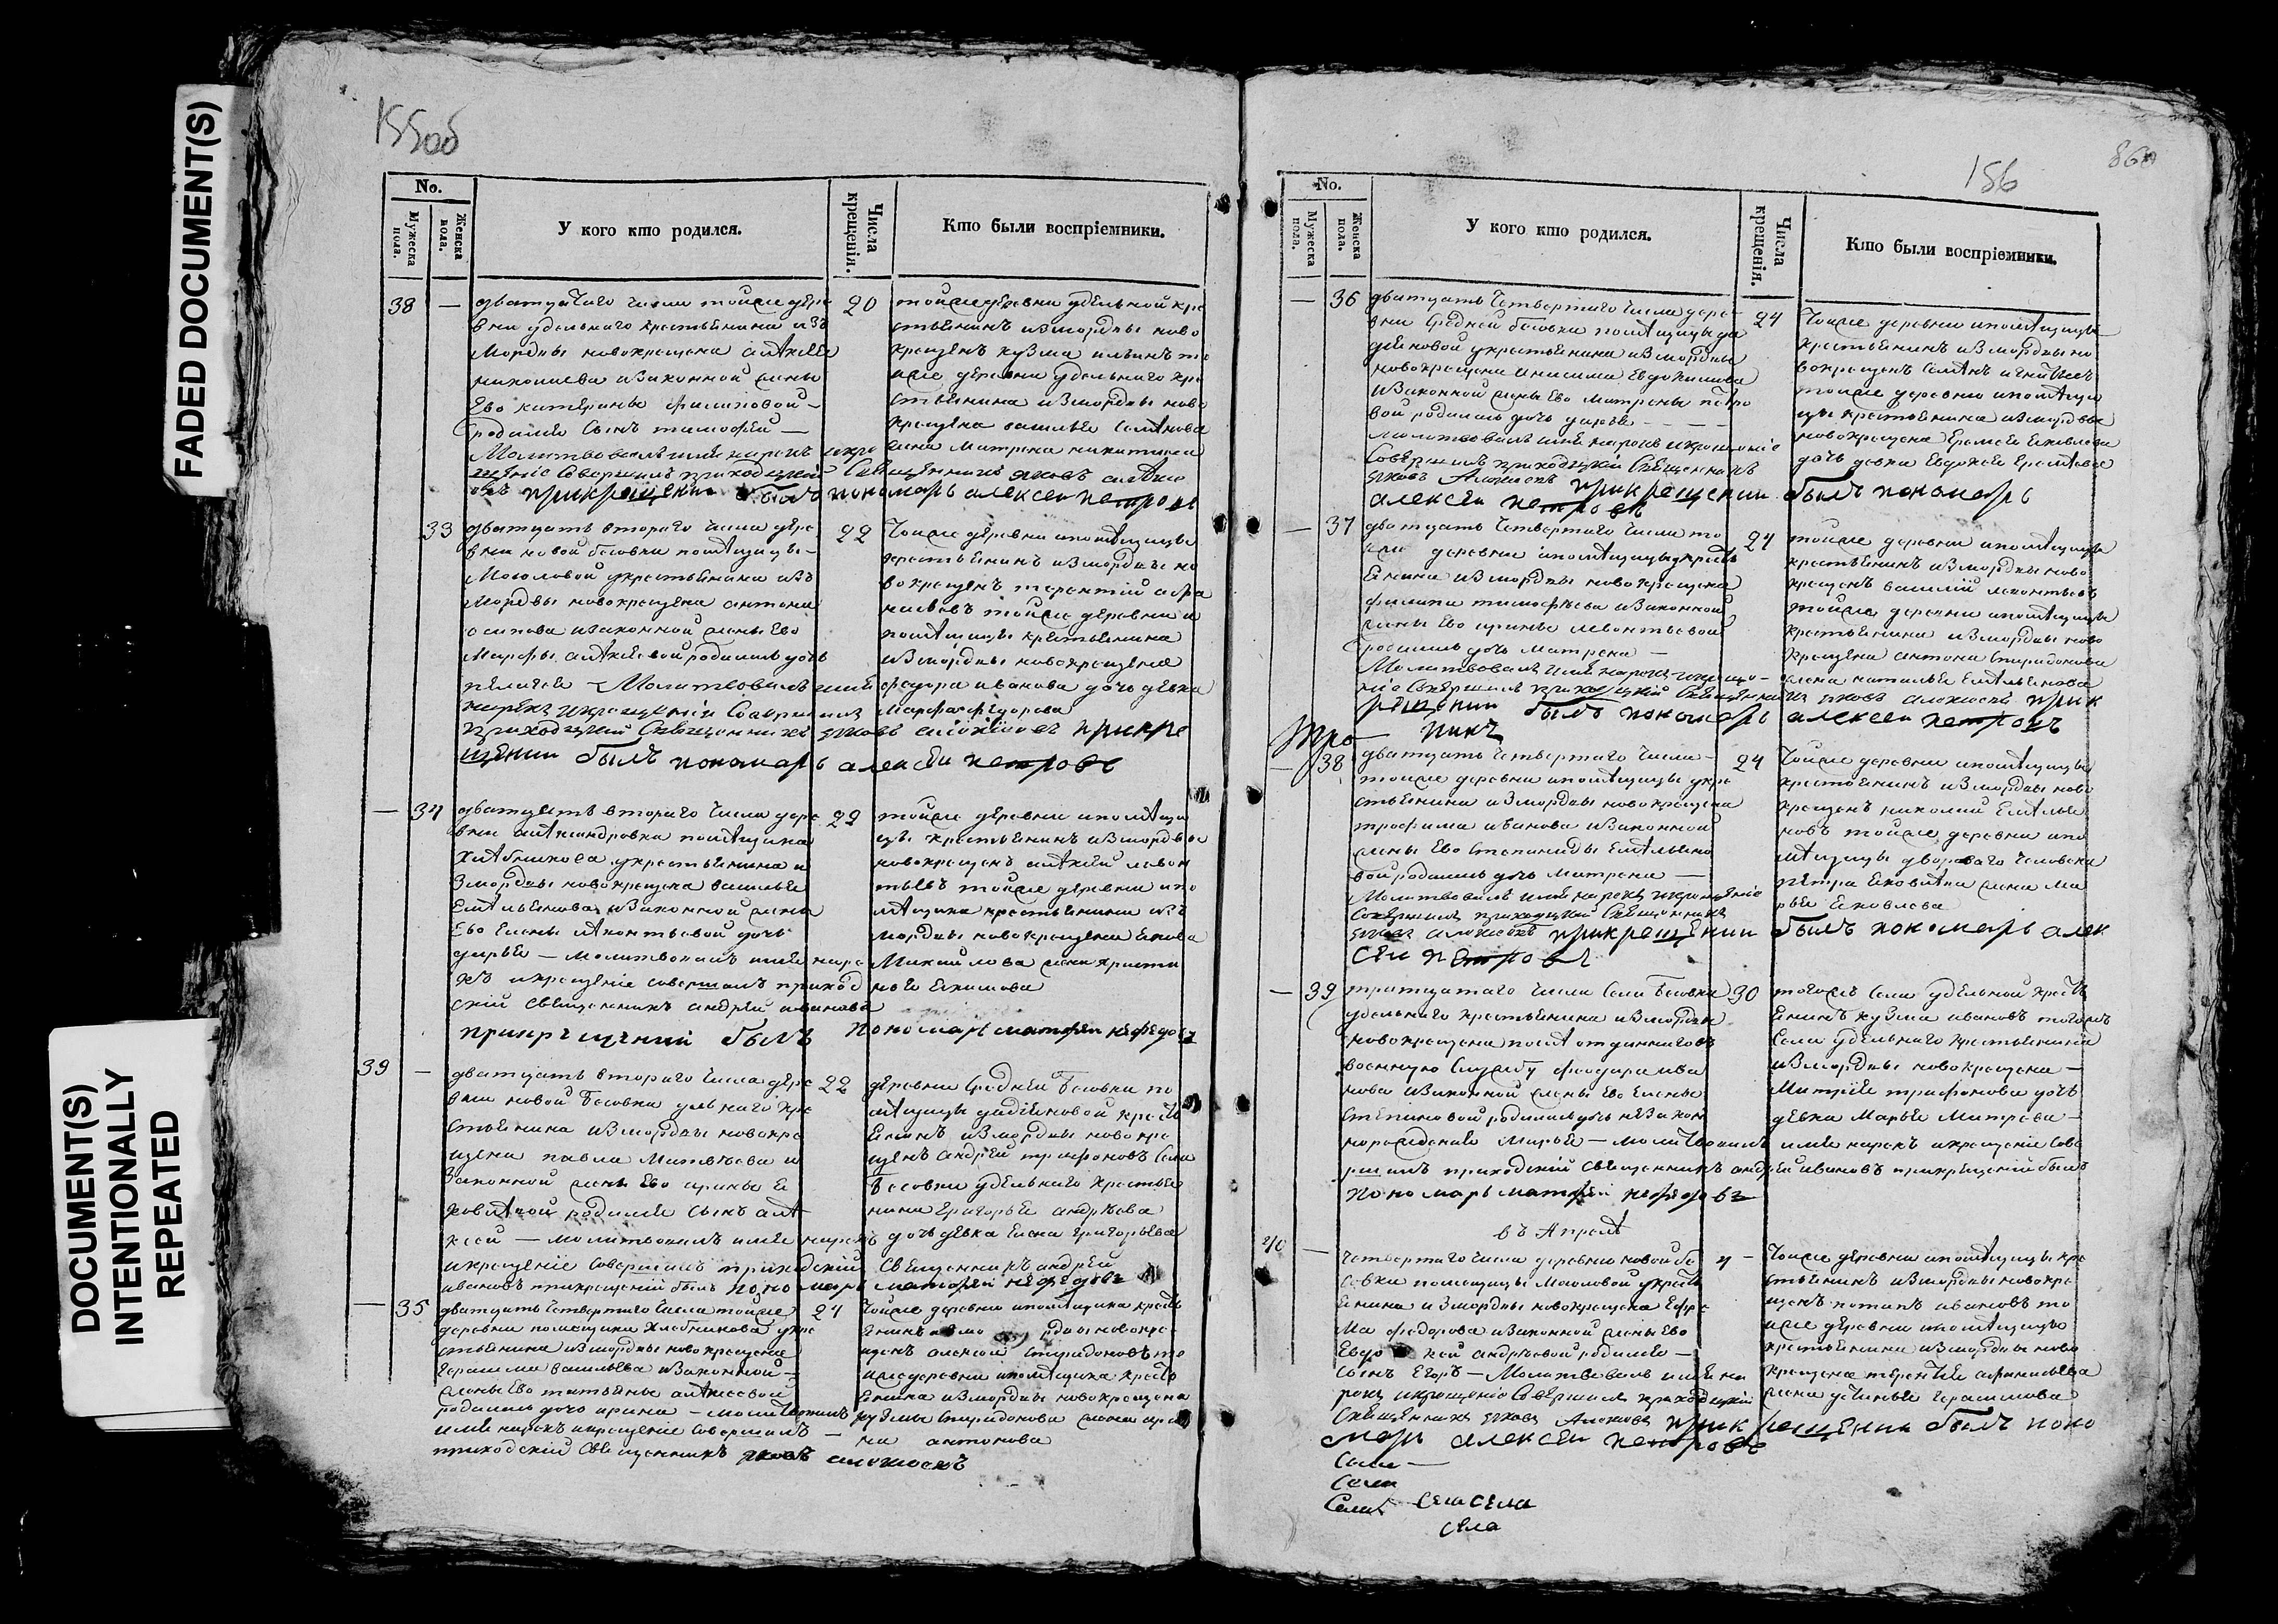 FADED DOCUMENT(S)
DOCUMENT(S)
INTENTIONALLY
REPEATED
155об
No.
Мужеска пола.
Женска пола.
У кого кто родился.
Числа крещенія.
Кто были воспріемники.
38 — дватцатаго числа тойже дере
вни удельнаго крестьянина изъ
Мордвы новокрещена алѣксея
николаева изаконной жены
Ево катерины филиповой —
родился сынъ тимофей —
Молитвовалъ имя нарекъ икре
щеніе Совершилъ приходцкій Священникъ яковъ
прикрещении былъ пономарь алексеи петровъ
20
тойже деревни удельной кре
стьянинъ измордвы ново
крещенъ кузма ильинъ то
иже деревни удельнаго кре
стьянина измордвы ново
крещена василья Семѣнова
жена Матрена никитина
33 дватцать втораго числа дере
вни новой бесовки помѣщицы —
Мосоловой укрестьянина изъ
Мордвы новокрещена антона
осипова изаконной жены Ево
Марфы алѣксеевой родилась дочь
пелагея — Молитвовалъ имя
нарекъ икрещеніе Совершилъ
приходцкий Священникъ яковъ прикре
щении былъ пономарь алексеи петровъ
22
Тойже деревни ипомѣщицы
крестьянинъ измордвы но
вокрещенъ терентий афра
тойже деревни и
помѣщицы крестьянина
измордвы новокрещена
федора иванова дочь девка
Марфа федорова
— 34 дватцать втораго числа дере
вни алѣксандровка помѣщика
Хлѣбникова укрестьянина и
Змордвы новокрещена василья
Емѣльянова изаконной жены
Ево елены лѣконтьевой дочь
дарья — молитвовалъ имя наре
къ икрещеніе совершалъ приход
скій священникъ андрей ивановъ
прикрещении былъ пономарь матфеи нефедовъ
22
тойже деревни ипомѣщи
цы крестьянинъ измордвы
новокрещенъ алѣксей левон
тьевъ тойже деревни ипо
мѣщика крестьянина изъ
мордвы новокрещена якова
Михайлова жена христи
нья екимова
39 — дватцать втораго числа дере
вни новой Бесовки удельнаго кре
стьянина измордвы новокре
щена павла Матвѣева и
Законной жены Ево ирины
родился сынъ алѣ
ксей — молитвовалъ имя нарекъ
икрещеніе Совершилъ приходский Священникъ андрей
ивановъ прикрещений былъ пономарь матфеи нефедовъ
22
деревни Средней Бесовки по
мѣщицы дадіяновой кресть
янинъ измордвы новокре
щенъ андрей трифоновъ Села
Бесовки удельнаго крестья
нина григорья андрѣева
дочь девка елена григорьева
— 35 дватцать четвертаго числа тойже
деревни помещика Хлебникова укре
стьянина измордвы новокрещена
герасима васильева изаконной —
жены Ево татьяны алѣксеевой
родилась дочь ирина — молитвовалъ
имя нарекъ икрещеніе совершалъ —
приходскій священникъ яковъ
24
Тойже деревни ипомѣщика кресть
янинъ измордвы новокре
щенъ алексей спиридоновъ то
йже деревни ипомѣщика кресть
янина измордвы новокрещена
кузьмы спиридонова жена ири
на антонова
156
860
No.
Мужеска пола.
Женска пола.
У кого кто родился.
Числа крещенія.
Кто были воспріемники.
— 36 дватцать Четвертаго числа дере
вни Средней бесовки помѣщицы да
дияновой укрестьянина измордвы
новокрещена анисима Евдокимова
изаконной жены Ево матрены петро
вой родилась дочь дарья —
Молитвовалъ имя нарекъ икрещеніе
Совершилъ приходцкій Священникъ
яковъ прикрещении былъ пономарь
алексеи петровъ
24
Тойже деревни ипомѣщицы
крестьянинъ измордвы но
вокрещенъ Семѣнъ игнатьевъ
тойже деревни ипомѣщи
цы крестьянина измордвы
новокрещена Ермолая яковлева
дочь девка Евдокея Ермолаева
— 37 дватцать Четвертаго числа то
йже деревни ипомѣщицы укресть
янина измордвы новокрещена
филипа тимофѣева изаконной
жены Ево ирины левонтьевой
родилась дочь матрена —
Молитвовалъ имя нарекъ икреще
ніе Совершилъ приходцкій Священникъ яковъ прик
рещении былъ пономарь алексеи петровъ
24
тойже деревни ипомѣщицы
крестьянинъ измордвы ново
крещенъ василий леонтьевъ
тойже деревни ипомѣщицы
крестьянина измордвы ново
крещена антона Спиридонова
жена наталья Емѣльянова
— 38 дватцать четвертаго числа —
тойже деревни ипомѣщицы укре
стьянина измордвы новокрещена
трофима иванова изаконной
жены Ево Степаниды Емѣльяно
вой родилась дочь матрена —
Молитвовалъ имя нарекъ икрещеніе
Совершилъ приходцкий Священникъ
яковъ прикрещении былъ пономарь алек
сеи петровъ
24
Тойже деревни ипомѣщицы
крестьянинъ измордвы ново
крещенъ николай Емѣлья
новъ тойже деревни ипо
мѣщицы двороваго человека
петра жена ма
рья яковлева
— 39 тритцатаго числа Села Бесовки
удельнаго крестьянина измордвы
новокрещена послѣ отданнаго въ
военную Службу федора ива
нова изаконной жены Ево елены
Степановой родилась дочь незакон
норожденая Марья — молитвовалъ имя нарекъ икрещеніе Сове
ршилъ приходскій священникъ андрей ивановъ прикрещений былъ
пономарь матфеи нефедовъ
30
тогожъ Села удельной кресть
янинъ кузма ивановъ тогожъ
Села удельнаго крестьянина
измордвы новокрещена —
Митрія трифонова дочь
девка Марья Митрева —
въ Апрелѣ
40 — четвертаго числа деревни новой бе
совки помещицы Мосоловой укресть
янина измордвы новокрещена Ефре
ма федорова изаконной жены Ево
андрѣевой родился —
сынъ Егоръ — Молитвовалъ имя на
рекъ икрещеніе Совершилъ приходцкій
Священникъ яковъ прикрещении былъ поно
марь алексеи петровъ
4 —
Тойже деревни ипомѣщицы кре
стьянинъ измордвы новокре
щенъ потапъ ивановъ то
йже деревни ипомѣщицы
крестьянина измордвы ново
крещена терентия афанасьева
жена устинья герасимова
Села
Села села
села